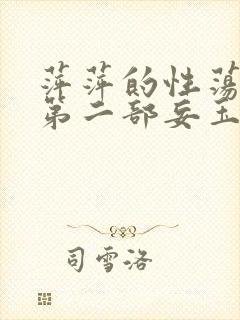 萍萍的性荡
第二部妄玉
司雪洛